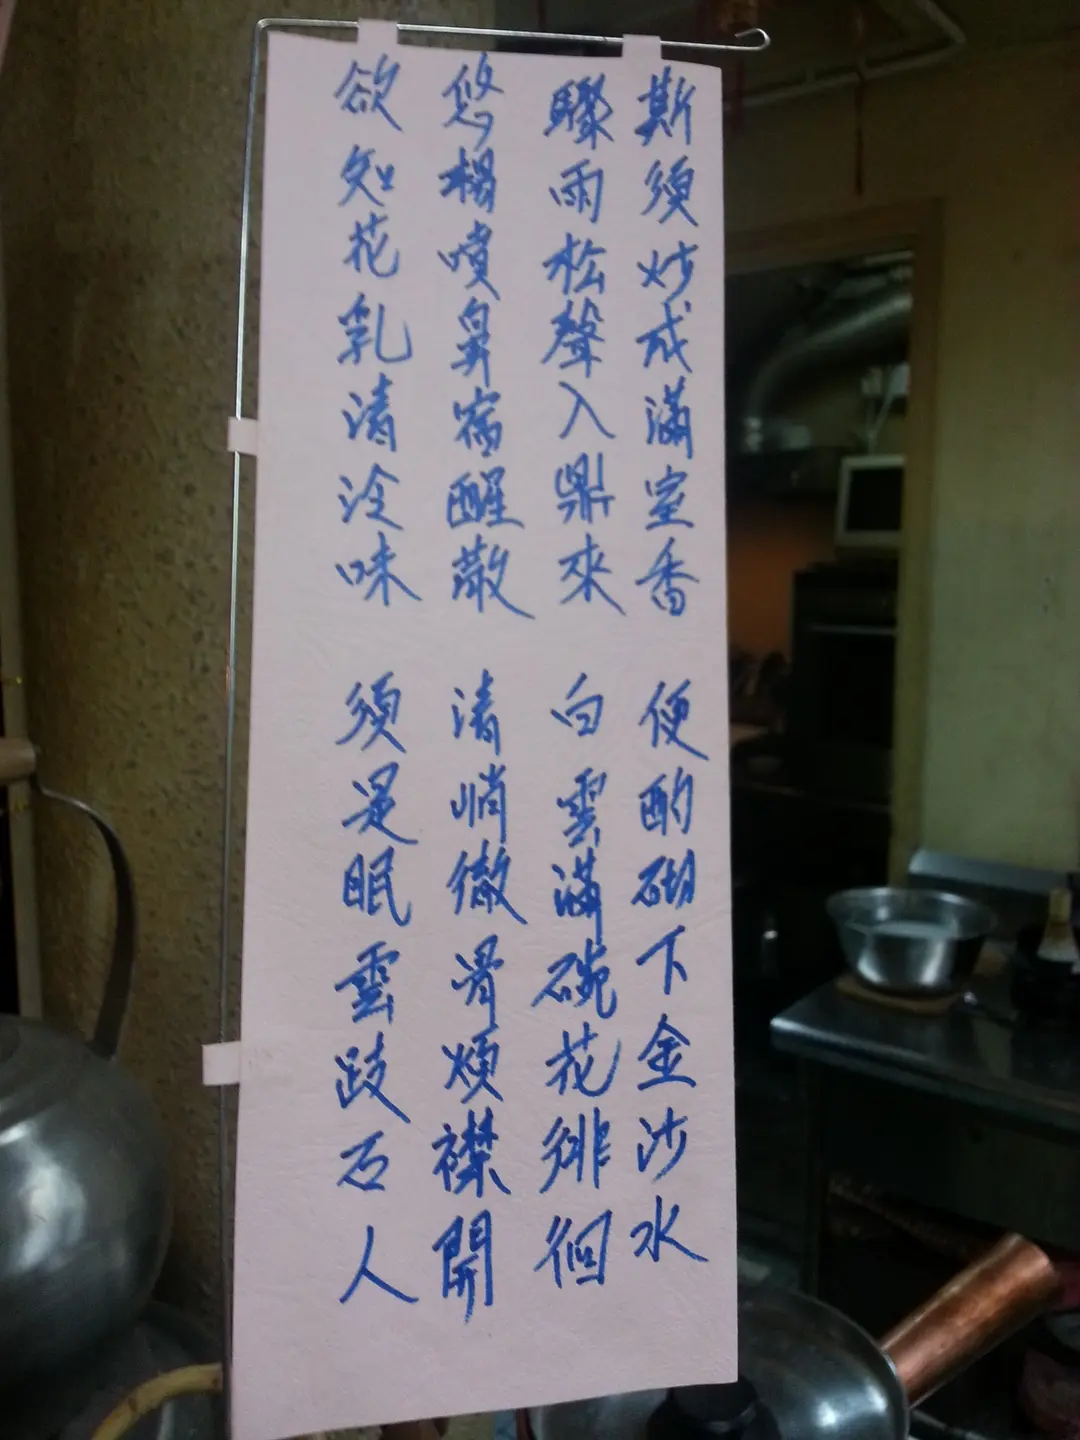 斯須炒成滿室香 便酌砌下金沙水
驟雨松聲入鼎來 白雲滿碗花徘徊
悠揚噴鼻宿醒散 清峭徹骨煩襟開
欲知花乳清冷味 須是眠雲跂石人